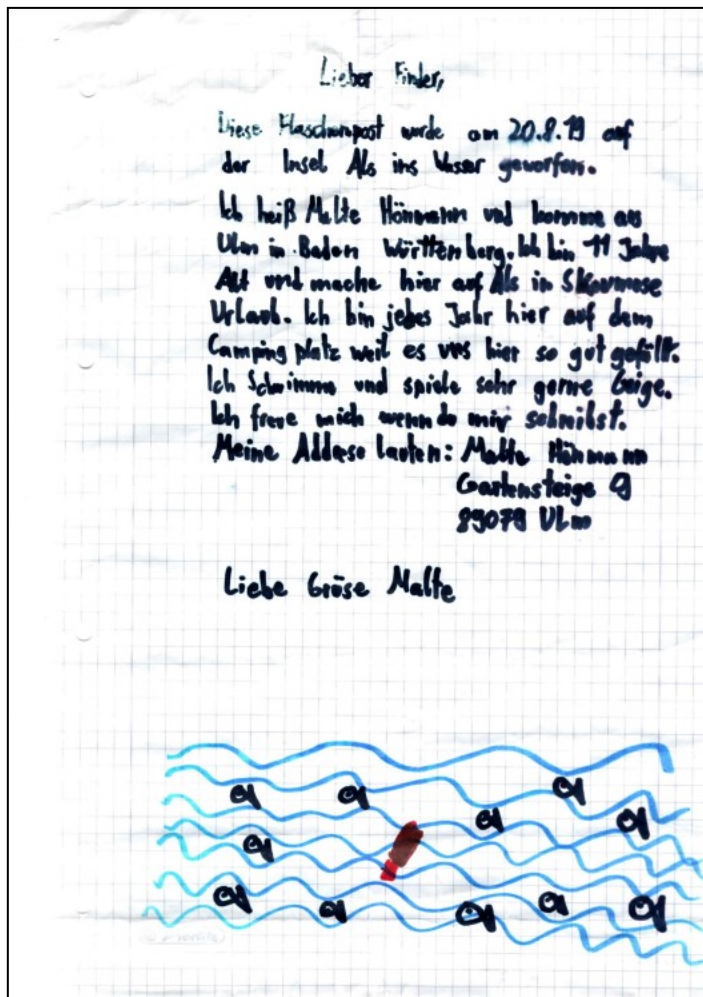 Lieber Finder,
Diese Flaschenpost wurde am 20.8.19 auf
der Insel Als ins Wasser geworfen.
Ich heiß Malte Hönmann und komme aus
Ulm in Baden Württemberg. Ich bin 11 Jahre
Alt und mache hier auf Als in Skovmose
Urlaub. Ich bin jedes Jahr hier auf dem
Camping platz weil es uns hier so gut gefällt.
Ich Schwimme und spiele sehr gerne Geige.
Ich freue mich wenn du mir schreibst.
Meine Addrese lauten: Malte Hönmann
Gartensteige 9
89079 Ulm
Liebe Grüse Malte